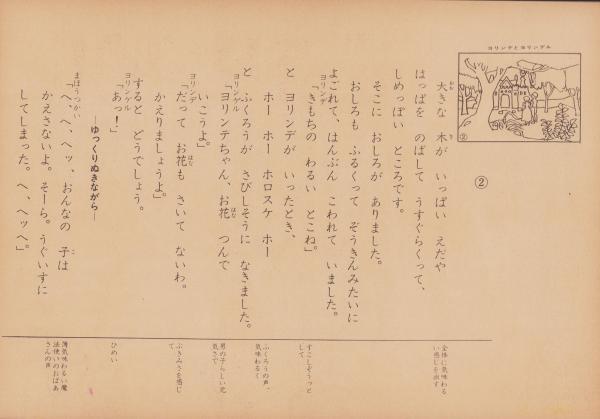 ヨリンデとヨリンゲル
②
②
大きな 木が いっぱい えだや
はっぱを のばして うすぐらくって、
しめっぽい ところです。
そこに おしろが ありました。
おしろも ふるくって ぞうきんみたいに
よごれて、はんぶん こわれて いました。
ヨリンデ「きもちの わるい とこね」
と ヨリンデが いったとき、
ホー ホー ホロスケ ホー
と ふくろうが さびしそうに なきました。
ヨリンゲル「ヨリンデちゃん、お花 つんで
いこうよ。」
ヨリンデ「だって お花も さいて ないわ。
かえりましょうよ。」
すると どうでしょう。
ヨリンゲル「あっ!」
―ゆっくりぬきながら―
まほうつかい「へ、へ、ヘッ、おんなの 子は
かえさないよ。そーら。うぐいすに
してしまった。へ、ヘッヘ」。
全体に気味わる
い感じを出す
すこしぞうっと
して
ふくろうの声、
気味わるく
男の子らしい元
気さで
ぶきみさを感じ
て
ひめい
薄気味わるい魔
法使いのおばあ
さんの声